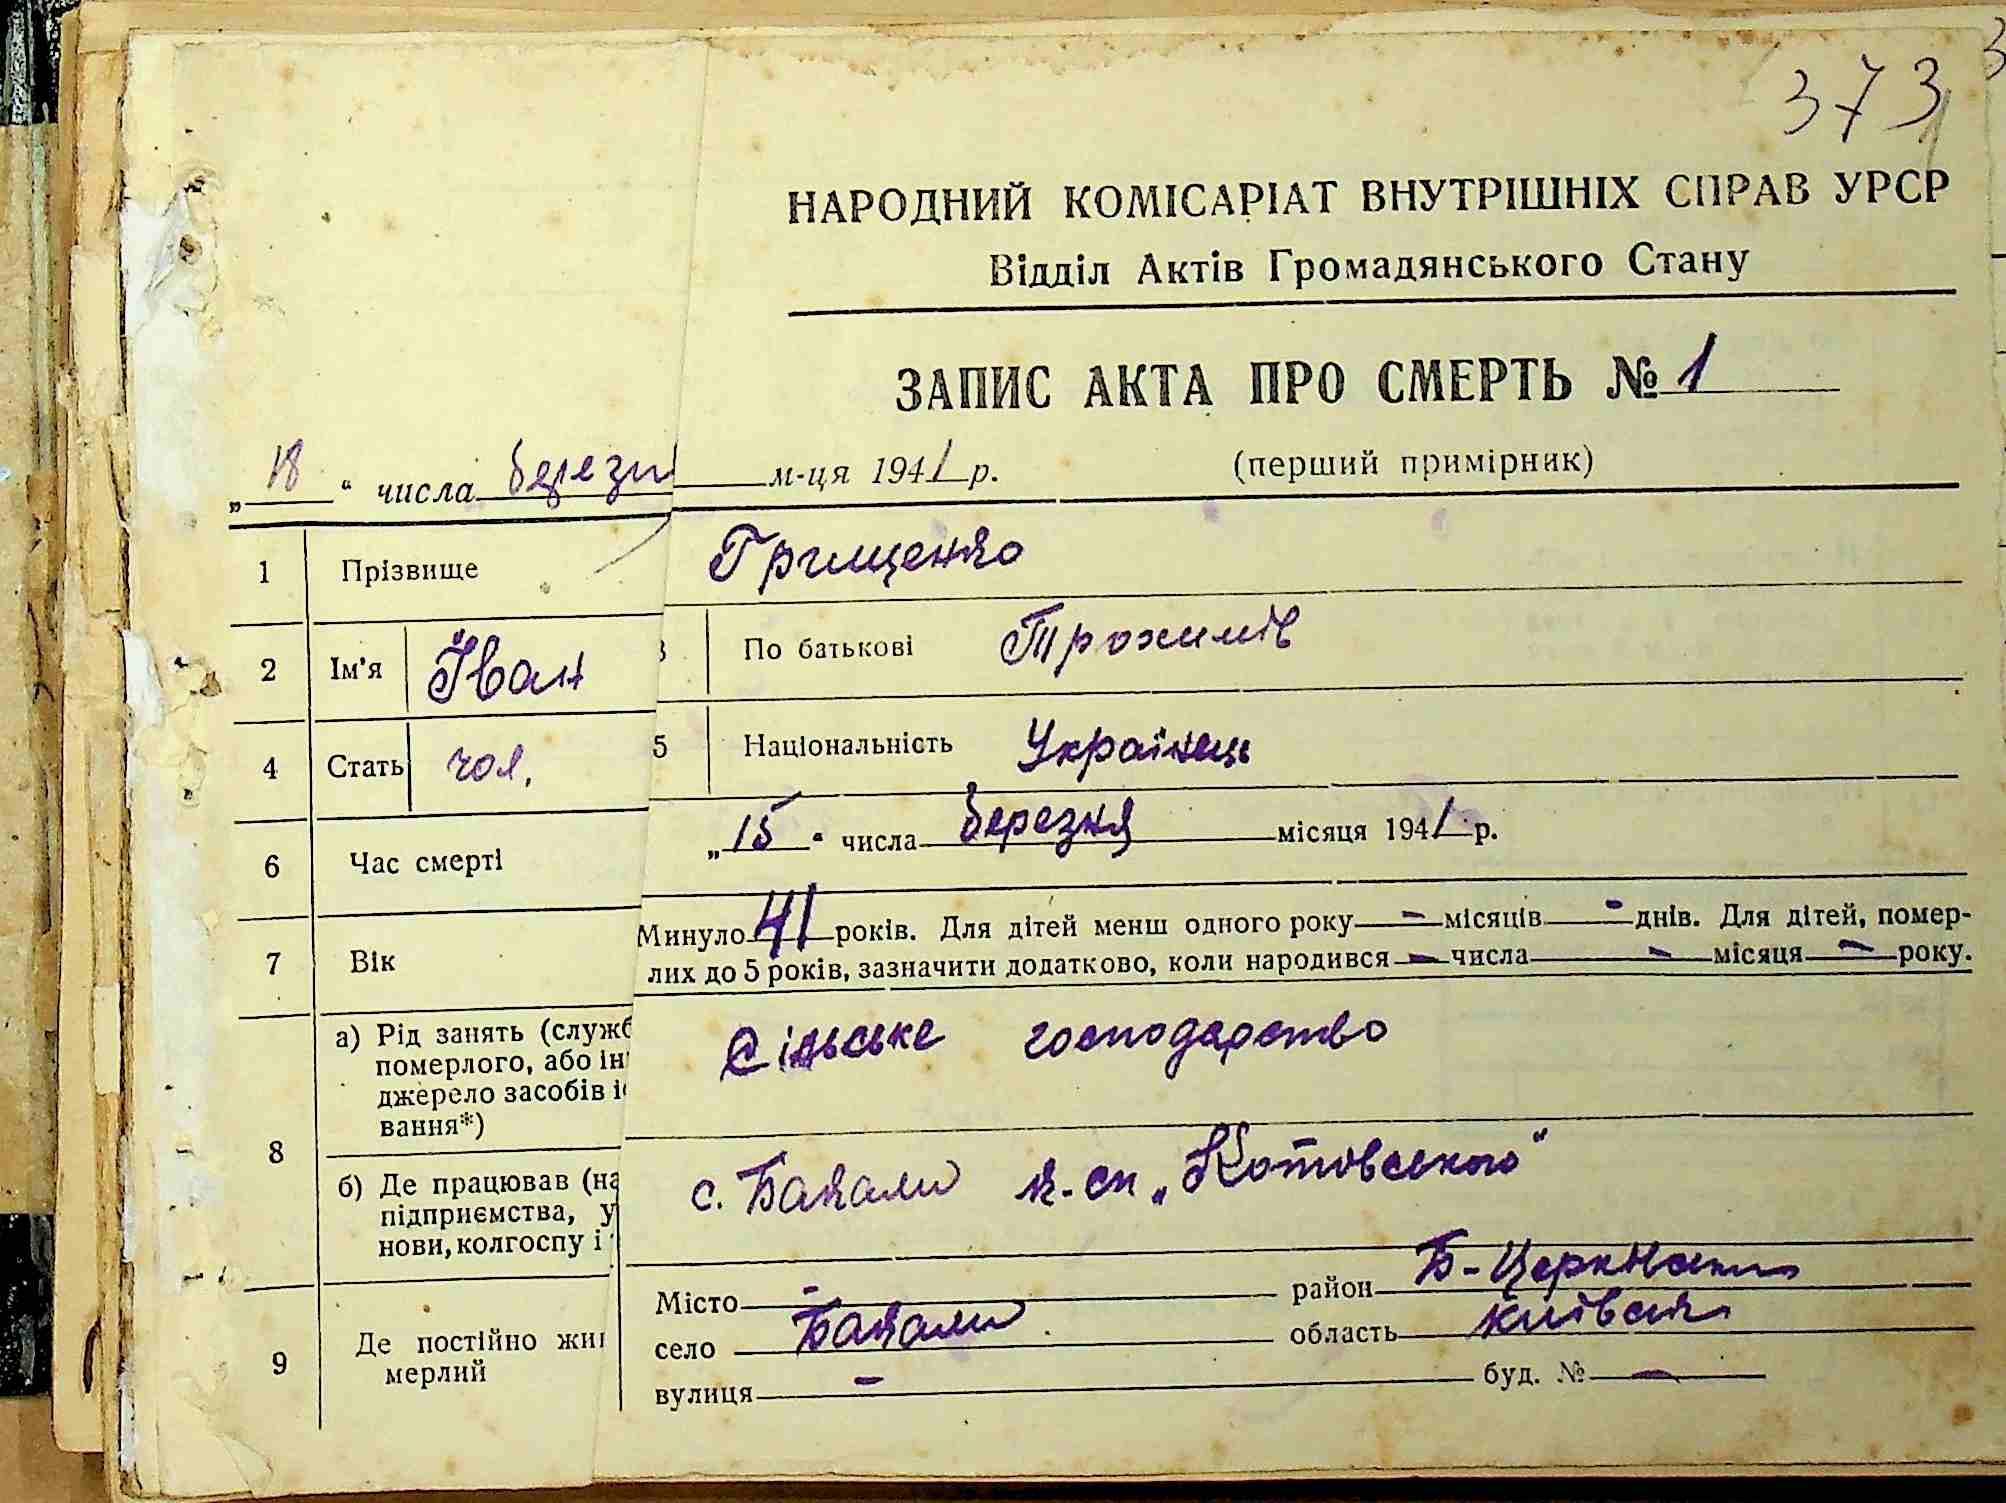 373
НАРОДНИЙ КОМІСАРІАТ ВНУТРІШНІХ СПРАВ УРСР
Відділ Актів Громадянського Стану
ЗАПИС АКТА ПРО СМЕРТЬ № 1
„18“ числа березн м-ця 1941 р. (перший примірник)
1 Прізвище Грищенко
2 Ім'я Іван 3 По батькові Трохимів
4 Стать чол. 5 Національність Українець
6 Час смерті „15“ числа березня місяця 1941 р.
7 Вік Минуло 41 років. Для дітей менш одного року - місяців - днів. Для дітей, помер-
лих до 5 років, зазначити додатково, коли народився - числа - місяця - року.
8 а) Рід занять (служб
померлого, або ін
джерело засобів і
вання*)
Сільське господарство
б) Де працював (на
підприємства, у
нови, колгоспу і
с. Бакали к-сп „Котовського"
9 Де постійно жи
мерлий
Місто - район Б-Церківськ
село Бакали область Київськ
вулиця - буд. № -